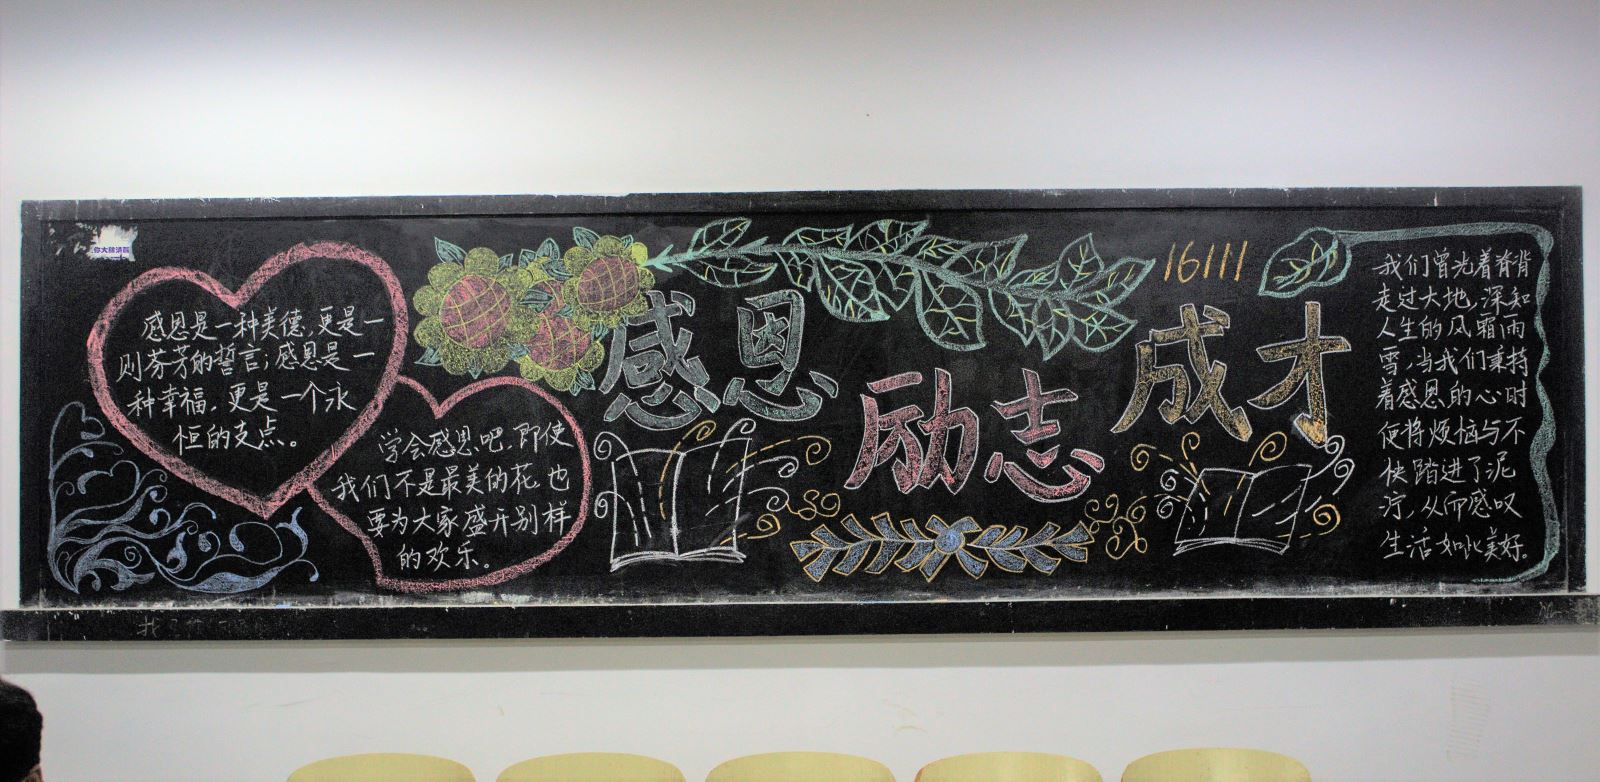 感恩是一种美德,更是一
则芬芳的誓言;感恩是一
种幸福,更是一个永
恒的支点。
学会感恩吧,即使
我们不是最美的花,也
要为大家盛开别样
的欢乐。
感恩
励志
成才
16111
我们曾光着脊背
走过大地,深知
人生的风霜雨
雪,当我们秉持
着感恩的心时
便将烦恼与不
快踏进了泥
泞,从而感叹
生活如此美好。